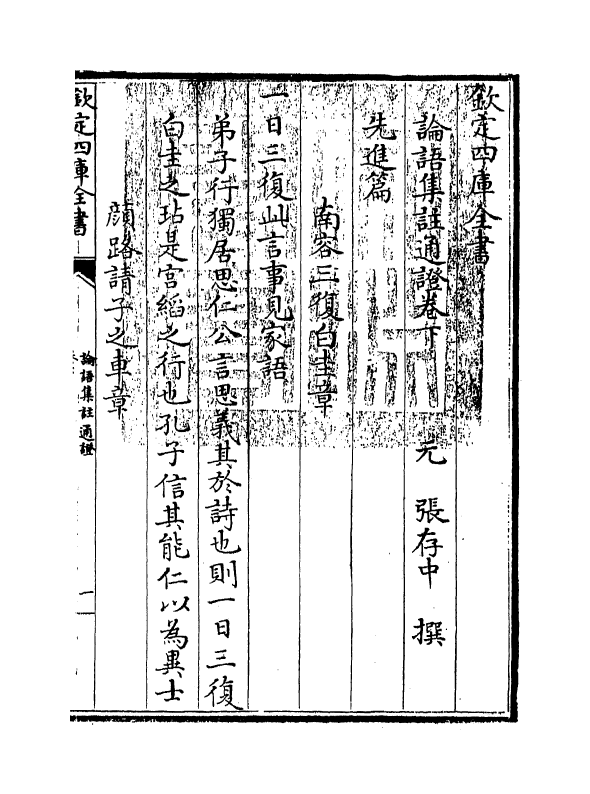 欽定四庫全書
論語集註通證卷下　元　張存中　撰
先進篇
南容三復白圭章
一日三復此言事見家語
弟子行獨居思仁公言思義其於詩也則一日三復
白圭之玷是宮縚之行也孔子信其能仁以為異士
顔路請子之車章
欽定四庫全書
論語集註通證
一